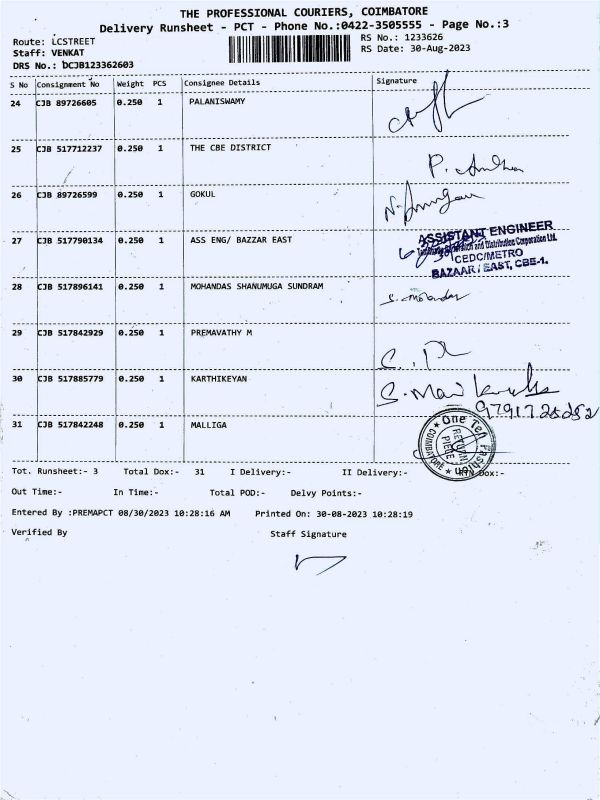 THE PROFESSIONAL COURIERS, COIMBATORE
Delivery Runsheet - PCT - Phone No.:0422-3505555 - Page No.:3
Route: LCSTREET RS No.: 1233626
Staff: VENKAT RS Date: 30-Aug-2023
DRS No.: DCJB123362603
S No Consignment No Weight PCS Consignee Details Signature
24 CJB 89726605 0.250 1 PALANISWAMY
25 CJB 517712237 0.250 1 THE CBE DISTRICT
26 CJB 89726599 0.250 1 GOKUL
27 CJB 517790134 0.250 1 ASS ENG/ BAZZAR EAST
ASSISTANT ENGINEER
and Distribution Corporation Ltd.
CEDC/METRO
BAZAAR / EAST, CBE-1.
28 CJB 517896141 0.250 1 MOHANDAS SHANUMUGA SUNDRAM
29 CJB 517842929 0.250 1 PREMAVATHY M
30 CJB 517885779 0.250 1 KARTHIKEYAN
31 CJB 517842248 0.250 1 MALLIGA
One Ten Fashion
COIMBATORE
RETURN PIECE
Tot. Runsheet:- 3 Total Dox:- 31 I Delivery:- II Delivery:- Dox:-
Out Time:- In Time:- Total POD:- Delvy Points:-
Entered By :PREMAPCT 08/30/2023 10:28:16 AM Printed On: 30-08-2023 10:28:19
Verified By Staff Signature